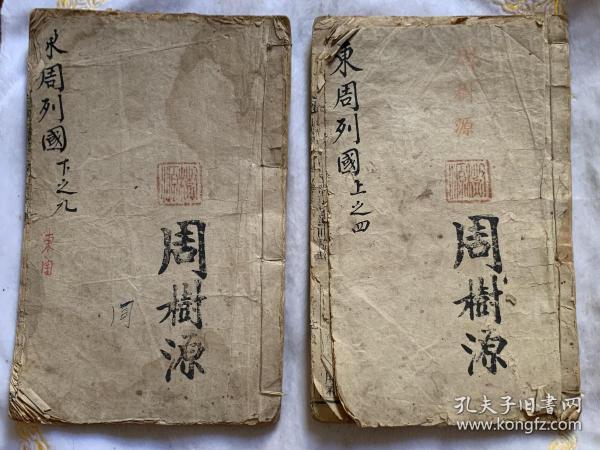 東周列國下之九
東周
周樹源
東周列國上之四
樹源
周樹源
孔夫子旧書网
www.kongfz.com